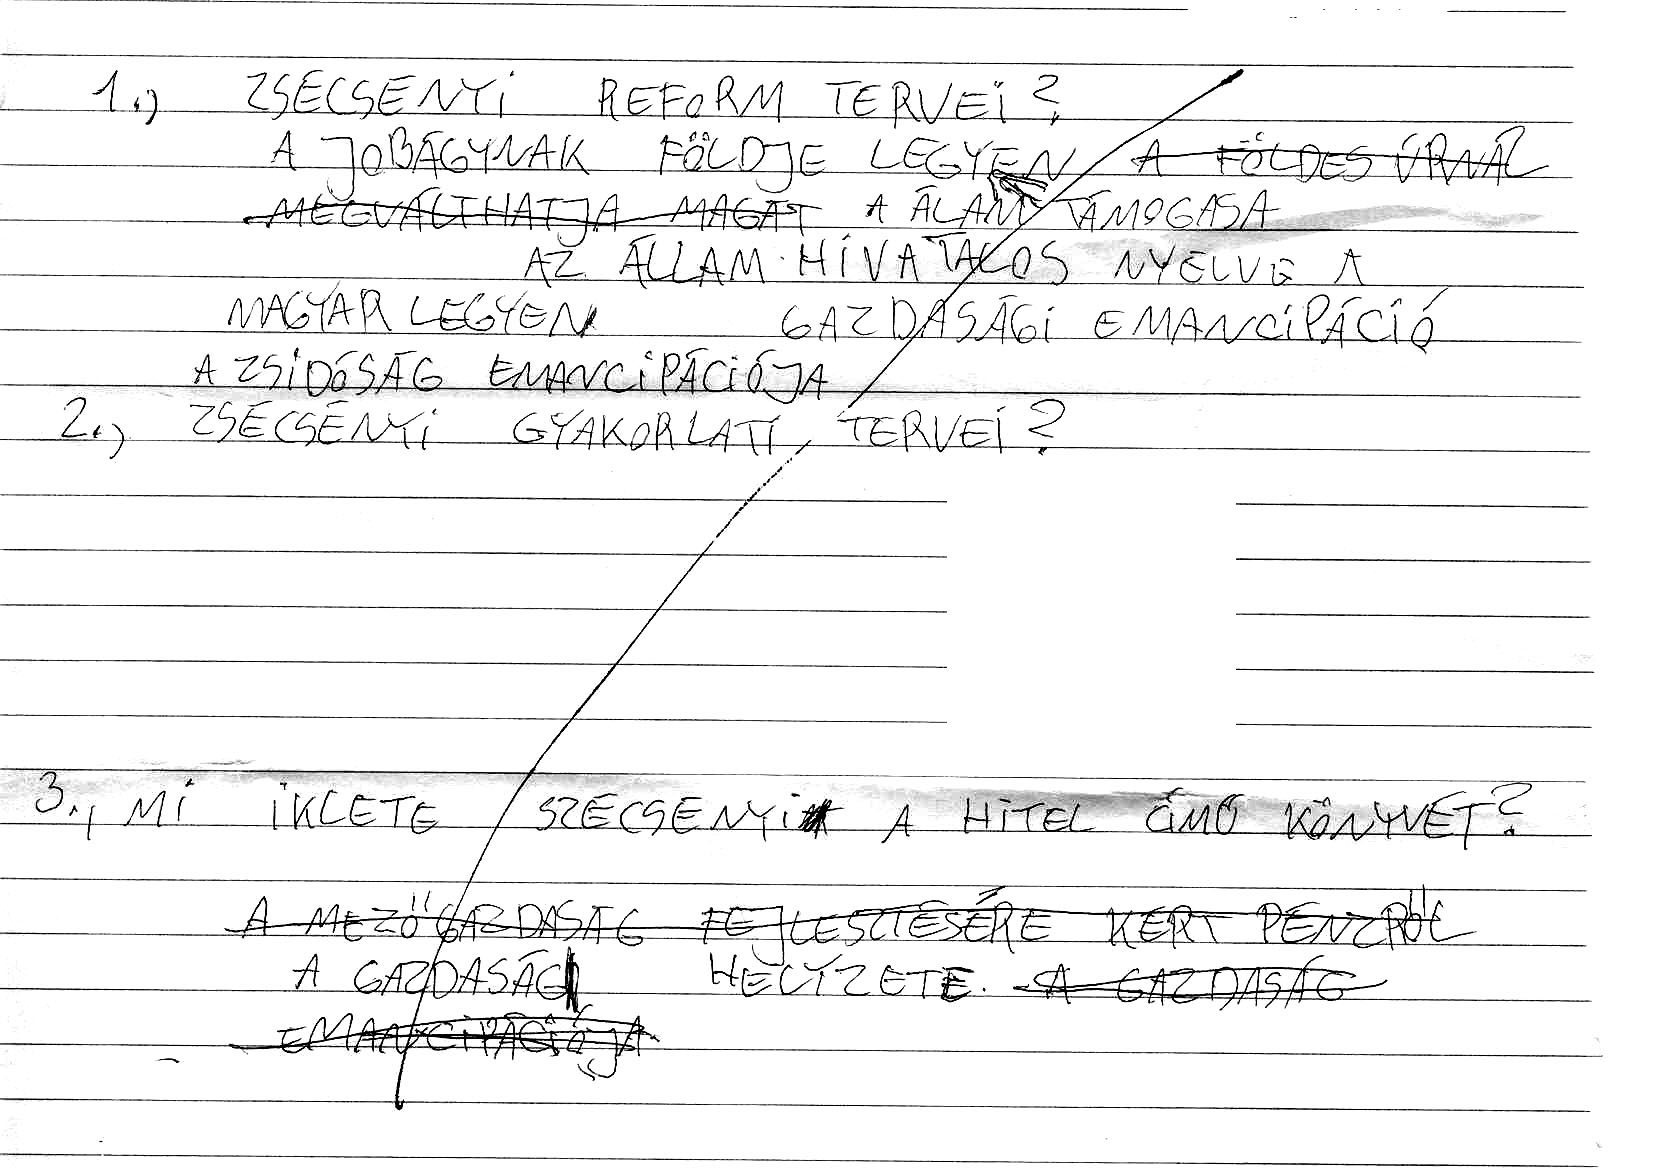 1.) ZSECSENYI REFORM TERVEI?
A JOBÁGYNAK FÖLDJE LEGYEN A FÖLDES ÚRNÁL
MEGVÁLTHATJA MAGÁT A ÁLAM TÁMOGASA
AZ ÁLLAM HIVATALOS NYELVE A
MAGYAR LEGYEN GAZDASÁGI EMANCIPÁCIÓ
A ZSIDÓSÁG EMANCIPÁCIÓJA
2.) ZSÉCSÉNYI GYAKORLATI TERVEI?
3., MI IKLETE SZÉCSENYI A HITEL CÍMŰ KÖNYVÉT?
A MEZŐGAZDASÁG FEJLESZTÉSÉRE KÉRT PÉNZRŐL
A GAZDASÁG HELYZETE. A GAZDASÁG
EMANCIPÁCIÓJA